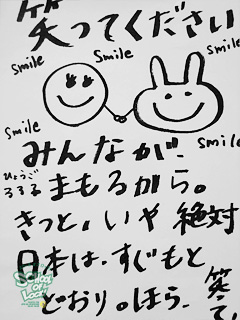 笑ってください
smile
smile
smile
smile
smile
みんなが
ひょうご
るるる
まもるから。
きっと、いや 絶対
日本は、すぐもと
どおり。ほら、笑って。
SCHOOL OF LOCK!